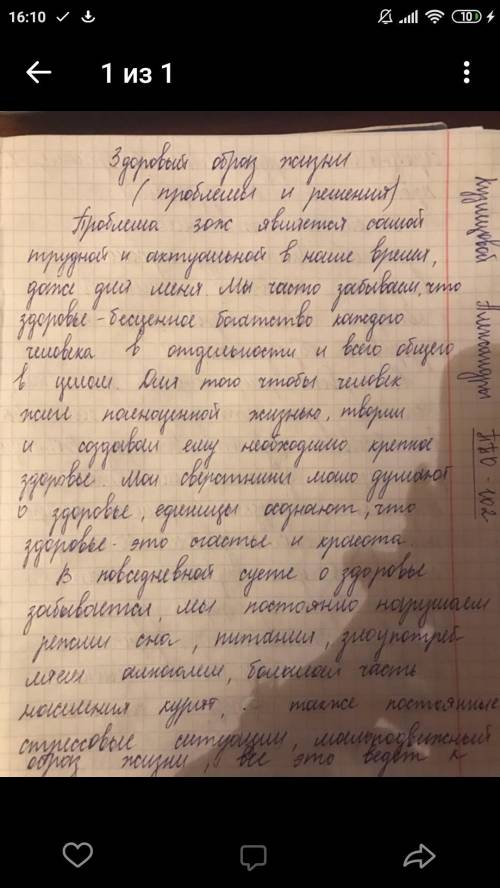 16:10
10
1 из 1
Здоровый образ жизни
(проблемы и решения)
Проблема зож является самой
трудной и актуальной в наше время,
даже для меня. Мы часто забываем, что
здоровье - бесценное богатство каждого
человека в отдельности и всего общего
в целом. Для того чтобы человек
жил полноценной жизнью, творил
и создавал ему необходимо крепкое
здоровье. Мои сверстники мало думают
о здоровье, единицы осознают, что
здоровье - это счастье и красота.
В повседневной суете о здоровье
забывается, мы постоянно нарушаем
режим сна, питания, злоупотреб
ляем алкоголем, большая часть
населения курят, а также постоянные
стрессовые ситуации, малоподвижный
образ жизни, все это ведет к